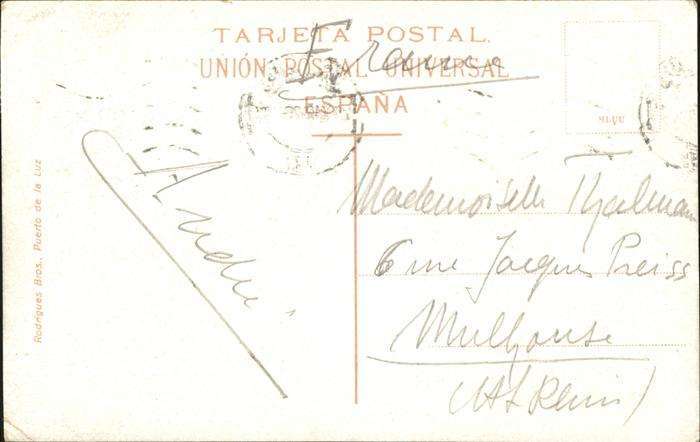 TARJETA POSTAL.
France
UNIÓN POSTAL UNIVERSAL
ESPAÑA
André
Mademoiselle
6 rue Jacques Preiss
Mulhouse
(Ht Rhin)
Rodrigues Bros., Puerto de la Luz